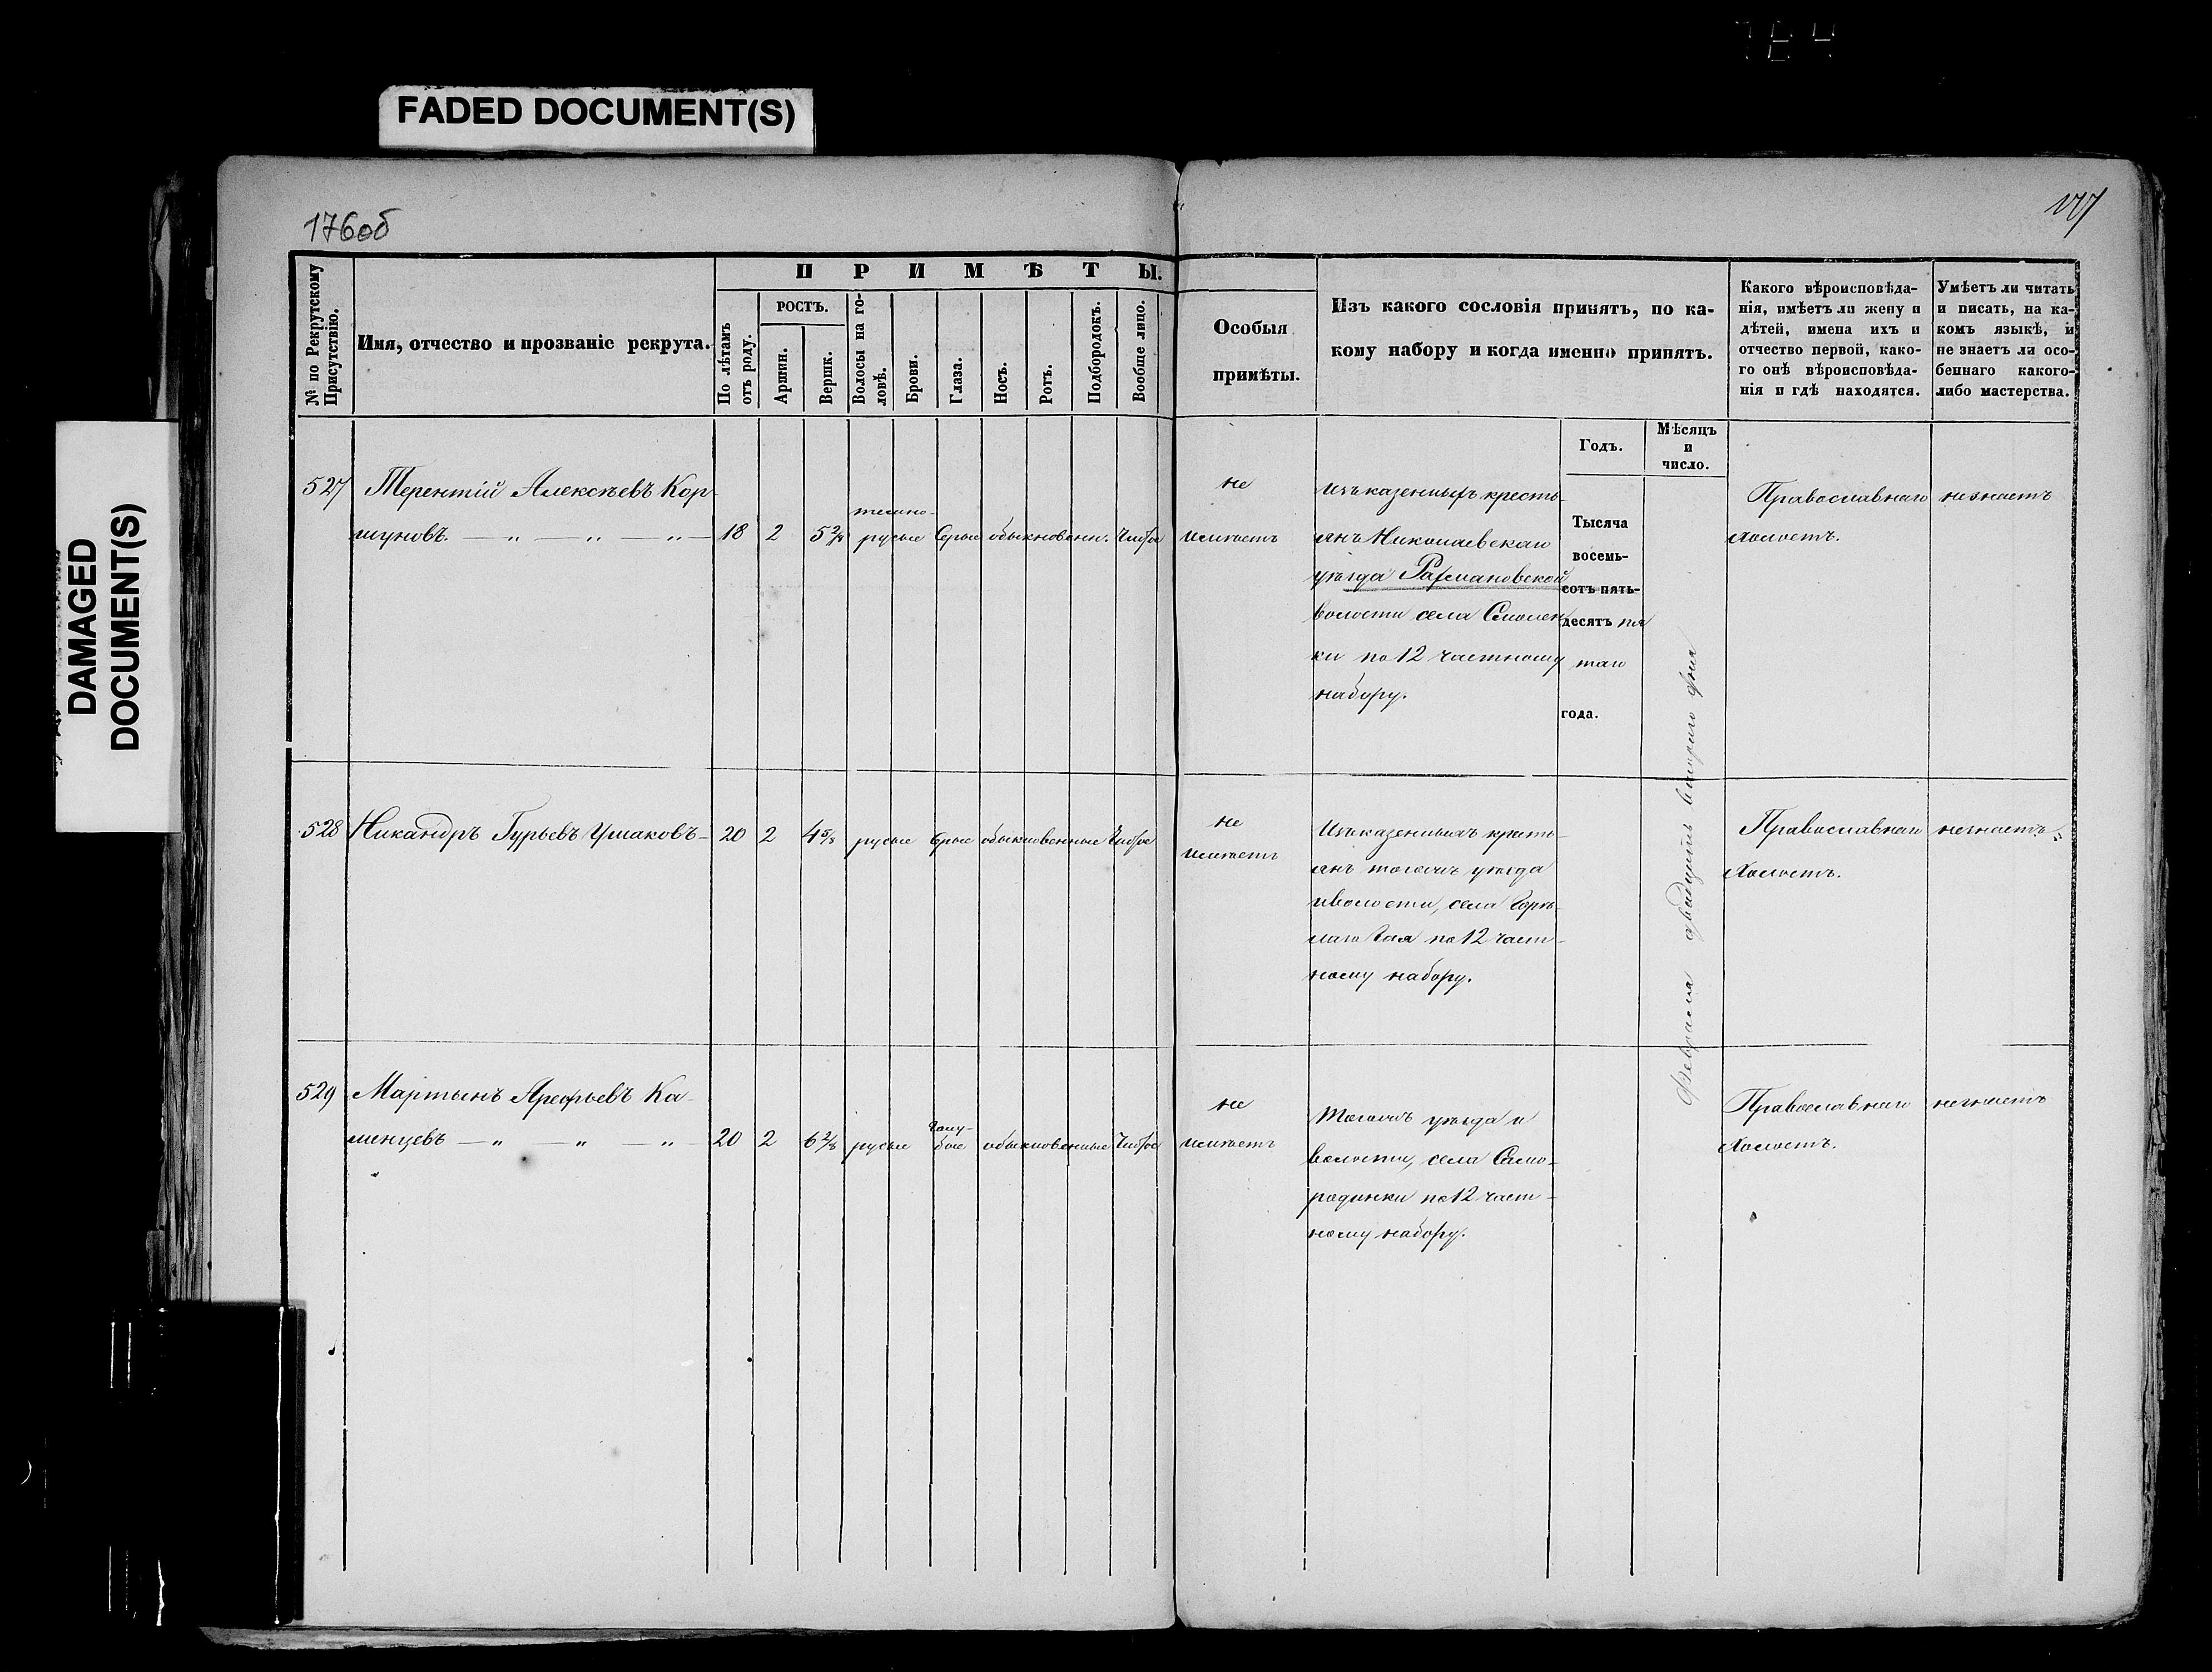 FADED DOCUMENT(S)
DAMAGED
DOCUMENT(S)
176об
177
№ по Рекрутскому Присутствію.
Имя, отчество и прозваніе рекрута.
ПРИМѢТЫ.
По лѣтамъ отъ роду.
РОСТЪ.
Аршин.
Вершк.
Волосы на головѣ.
Брови.
Глаза.
Носъ.
Ротъ.
Подбородокъ.
Вообще лицо.
Особыя
примѣты.
Изъ какого сословія принятъ, по ка-
кому набору и когда именно принятъ.
Какого вѣроисповѣда-
нія, имѣетъ ли жену и
дѣтей, имена ихъ и
отчество первой, како-
го онѣ вѣроисповѣда-
нія и гдѣ находятся.
Умѣетъ ли читать
и писать, на ка-
комъ языкѣ, и
не знаетъ ли осо-
беннаго какого-
либо мастерства.
Годъ.
Мѣсяцъ
и
число.
527 Терентій Алексѣевъ Кор-
шуновъ. — „ — „ — „ — 18 2 5 2/8 темно-
русые Серые обыкновенн. Чистое
не
имѣетъ
Изъ казенныхъ кресть-
янъ Николаевскаго
уѣзда Рахмановской
волости села Смолен-
ки по 12 частному
набору.
Тысяча
восемь-
сотъ пять-
десятъ пя
таго
года.
Февраля двадцать втораго дня
Православнаго
Холостъ.
незнаетъ
528 Никандръ Гурьевъ Ушаковъ — 20 2 4 5/8 русые Серые обыкновенные Чистое
не
имѣетъ
Изъ казенныхъ кресть-
янъ тогожъ уѣзда
и волости, села Горѣ-
лаго Гая по 12 част-
ному набору.
Православнаго
Холостъ.
незнаетъ
529 Мартынъ Арефьевъ Ка-
менцевъ — „ — „ — „ — 20 2 6 2/8 русые голу-
бые обыкновенные Чистое
не
имѣетъ
Тогожъ уѣзда и
волости, села Само-
родинки по 12 част-
ному набору.
Православнаго
Холостъ.
незнаетъ